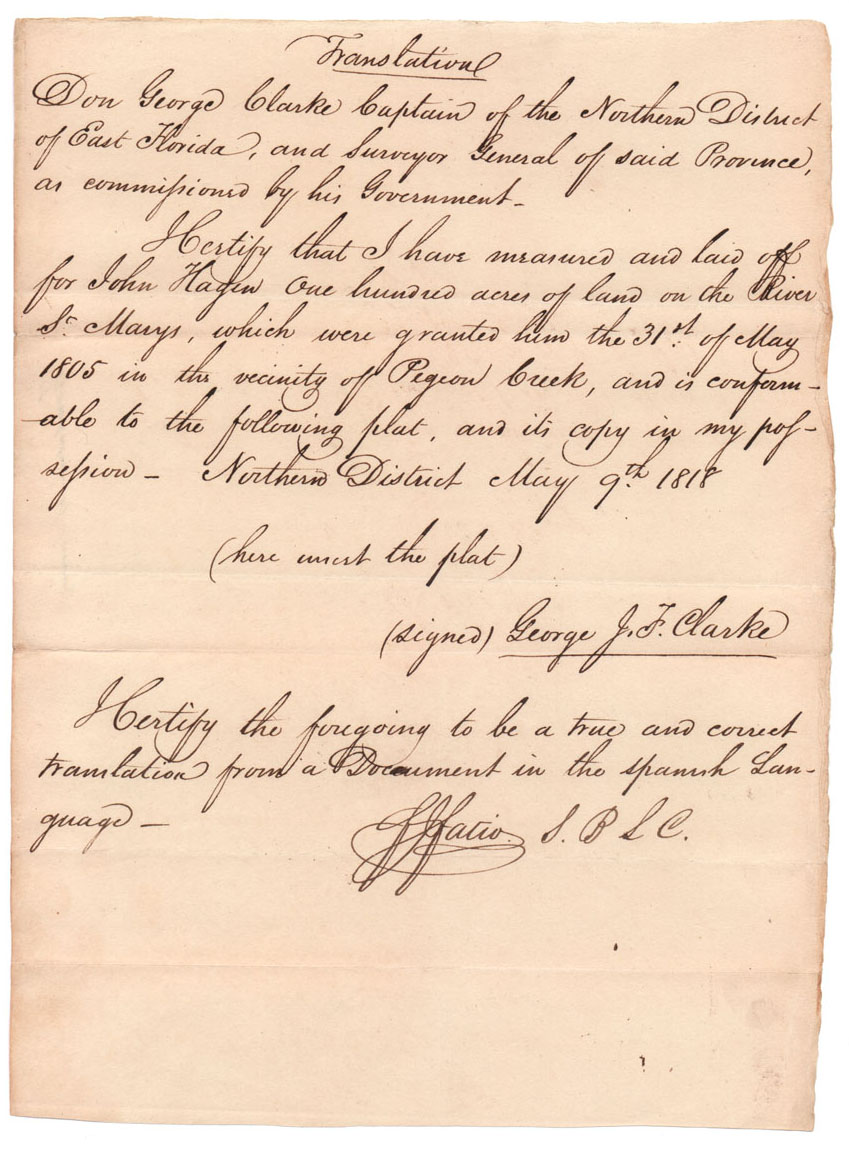 Translation
Don George Clarke Captain of the Northern District
of East Florida, and Surveyor General of said Province,
as commissioned by his Government_
I Certify that I have measured and laid off
for John Hagen One hundred acres of land on the River
St. Marys, which were granted him the 31st. of May
1805 in the vicinity of Pegeon Creek, and is conform-
able to the following plat, and its copy in my pos-
session _ Northern District May 9th. 1818
(here insert the plat)
(signed) George J. F. Clarke
I Certify the foregoing to be a true and correct
translation from a Document in the spanish Lan-
guage _
F J Fatio. S. B L C.